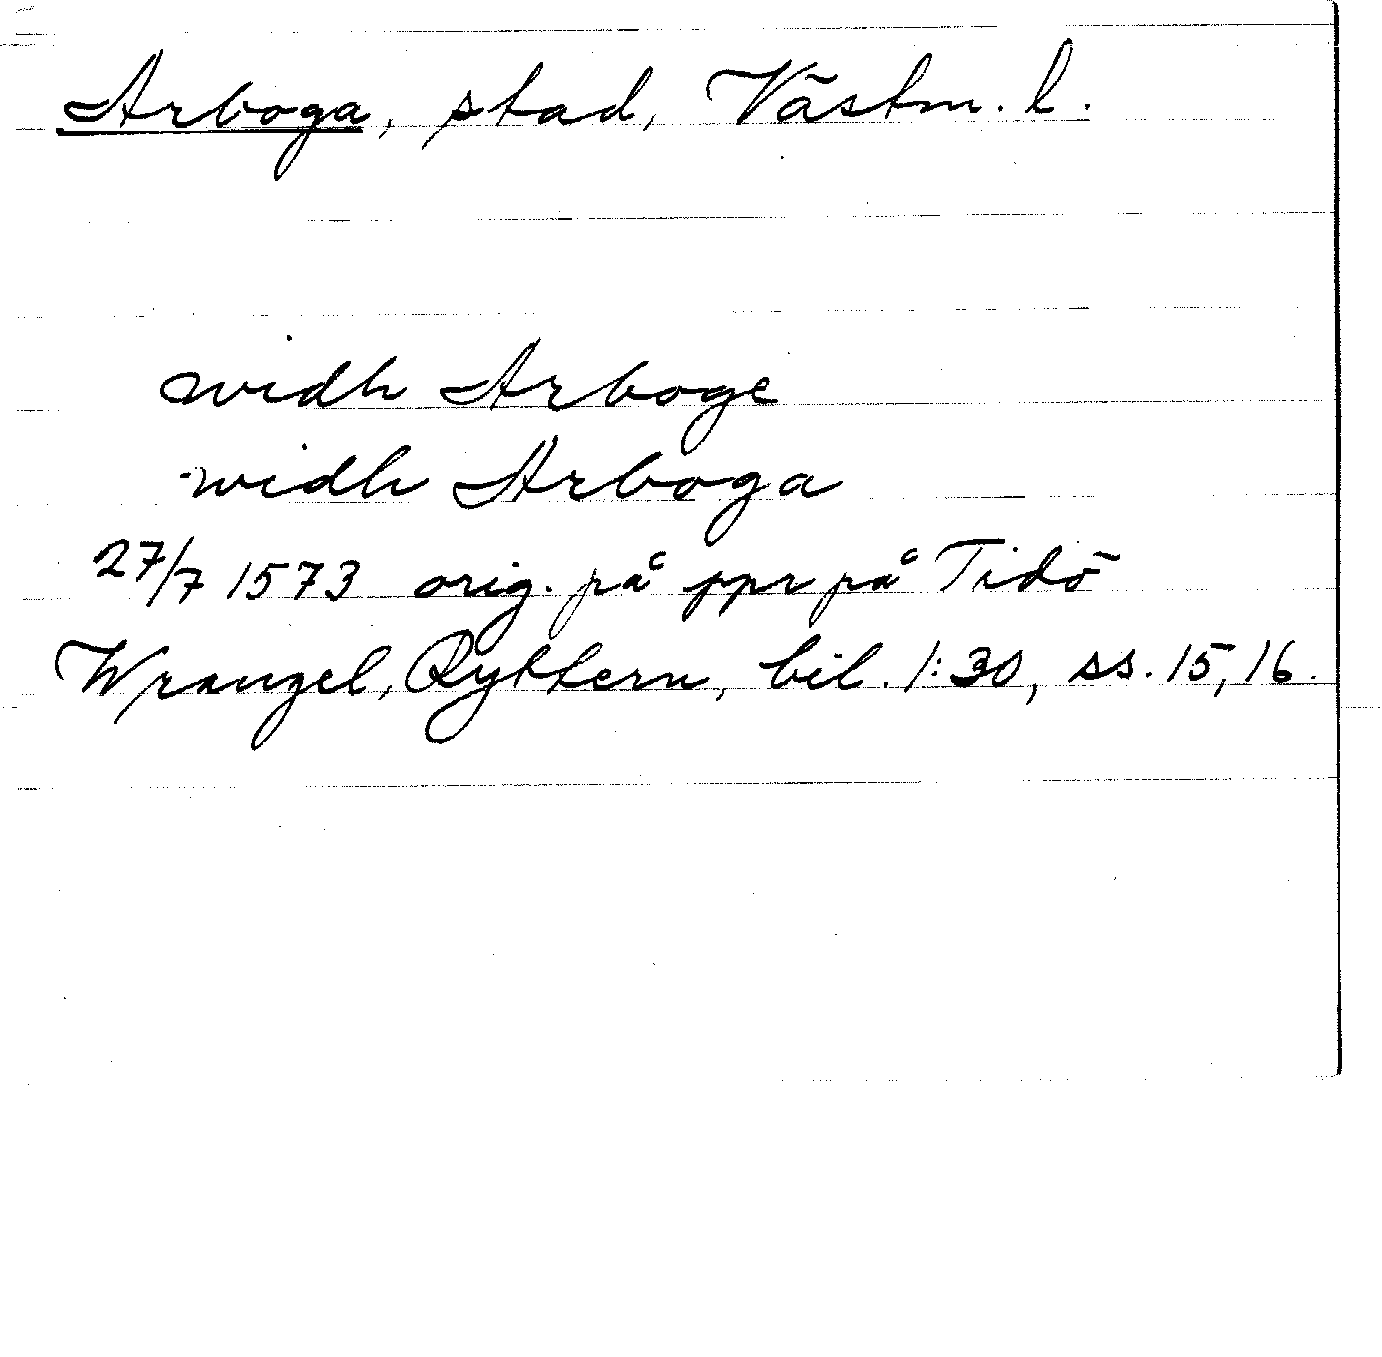 Arboga, stad, Västm. l.
widh Arboge
widh Arboga
27/7 1573 orig. på ppr på Tidö
Wrangel, Ryttern, bil. 1:30, ss. 15, 16.